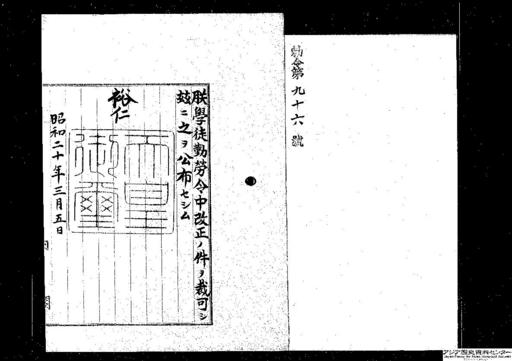 勅令第九十六號
朕學徒勤勞令中改正ノ件ヲ裁可シ
玆ニ之ヲ公布セシム
裕仁
天皇御璽
昭和二十年三月五日
内閣
アジア歴史資料センター